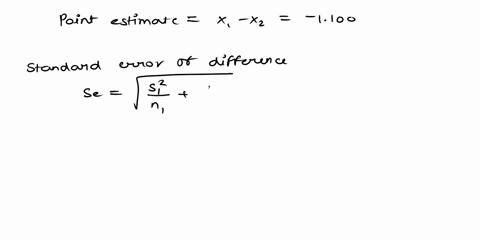 Point estimate = x₁ - x₂ = -1.100
Standard error of difference
Se = √(s₁²/n₁ +